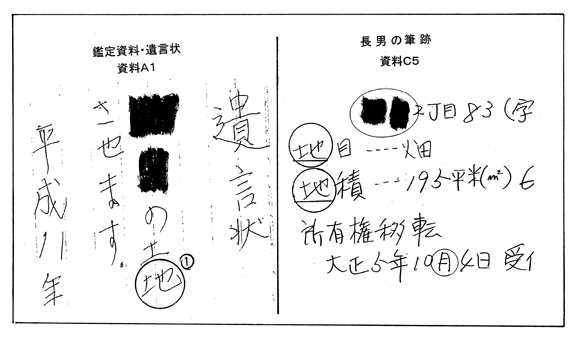 鑑定資料・遺言状
資料A1
遺言状
の土地
①
させます。
平成11年
長男の筆跡
資料C5
丁目83(字
地目-----畑
地積---195平米(㎡)
所有権移転
大正5年10月4日 受